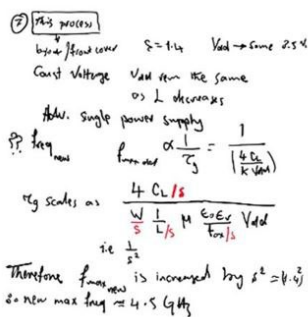 ⑦ This process
S=1.4 Vdd → same 2.5V
Const Voltage Vdd rem the same
as L decreases
Adv. single power supply
?? freq new fmax ∝ 1/τg = 1/(4CL/K Vdd)
τg scales as 4 CL/s / (W/s 1/L/s μ ε0εr/tox/s Vdd)
i.e. 1/s²
Therefore fmax new is increased by s² = (1.4)²
so new max freq ≈ 4.5 GHz